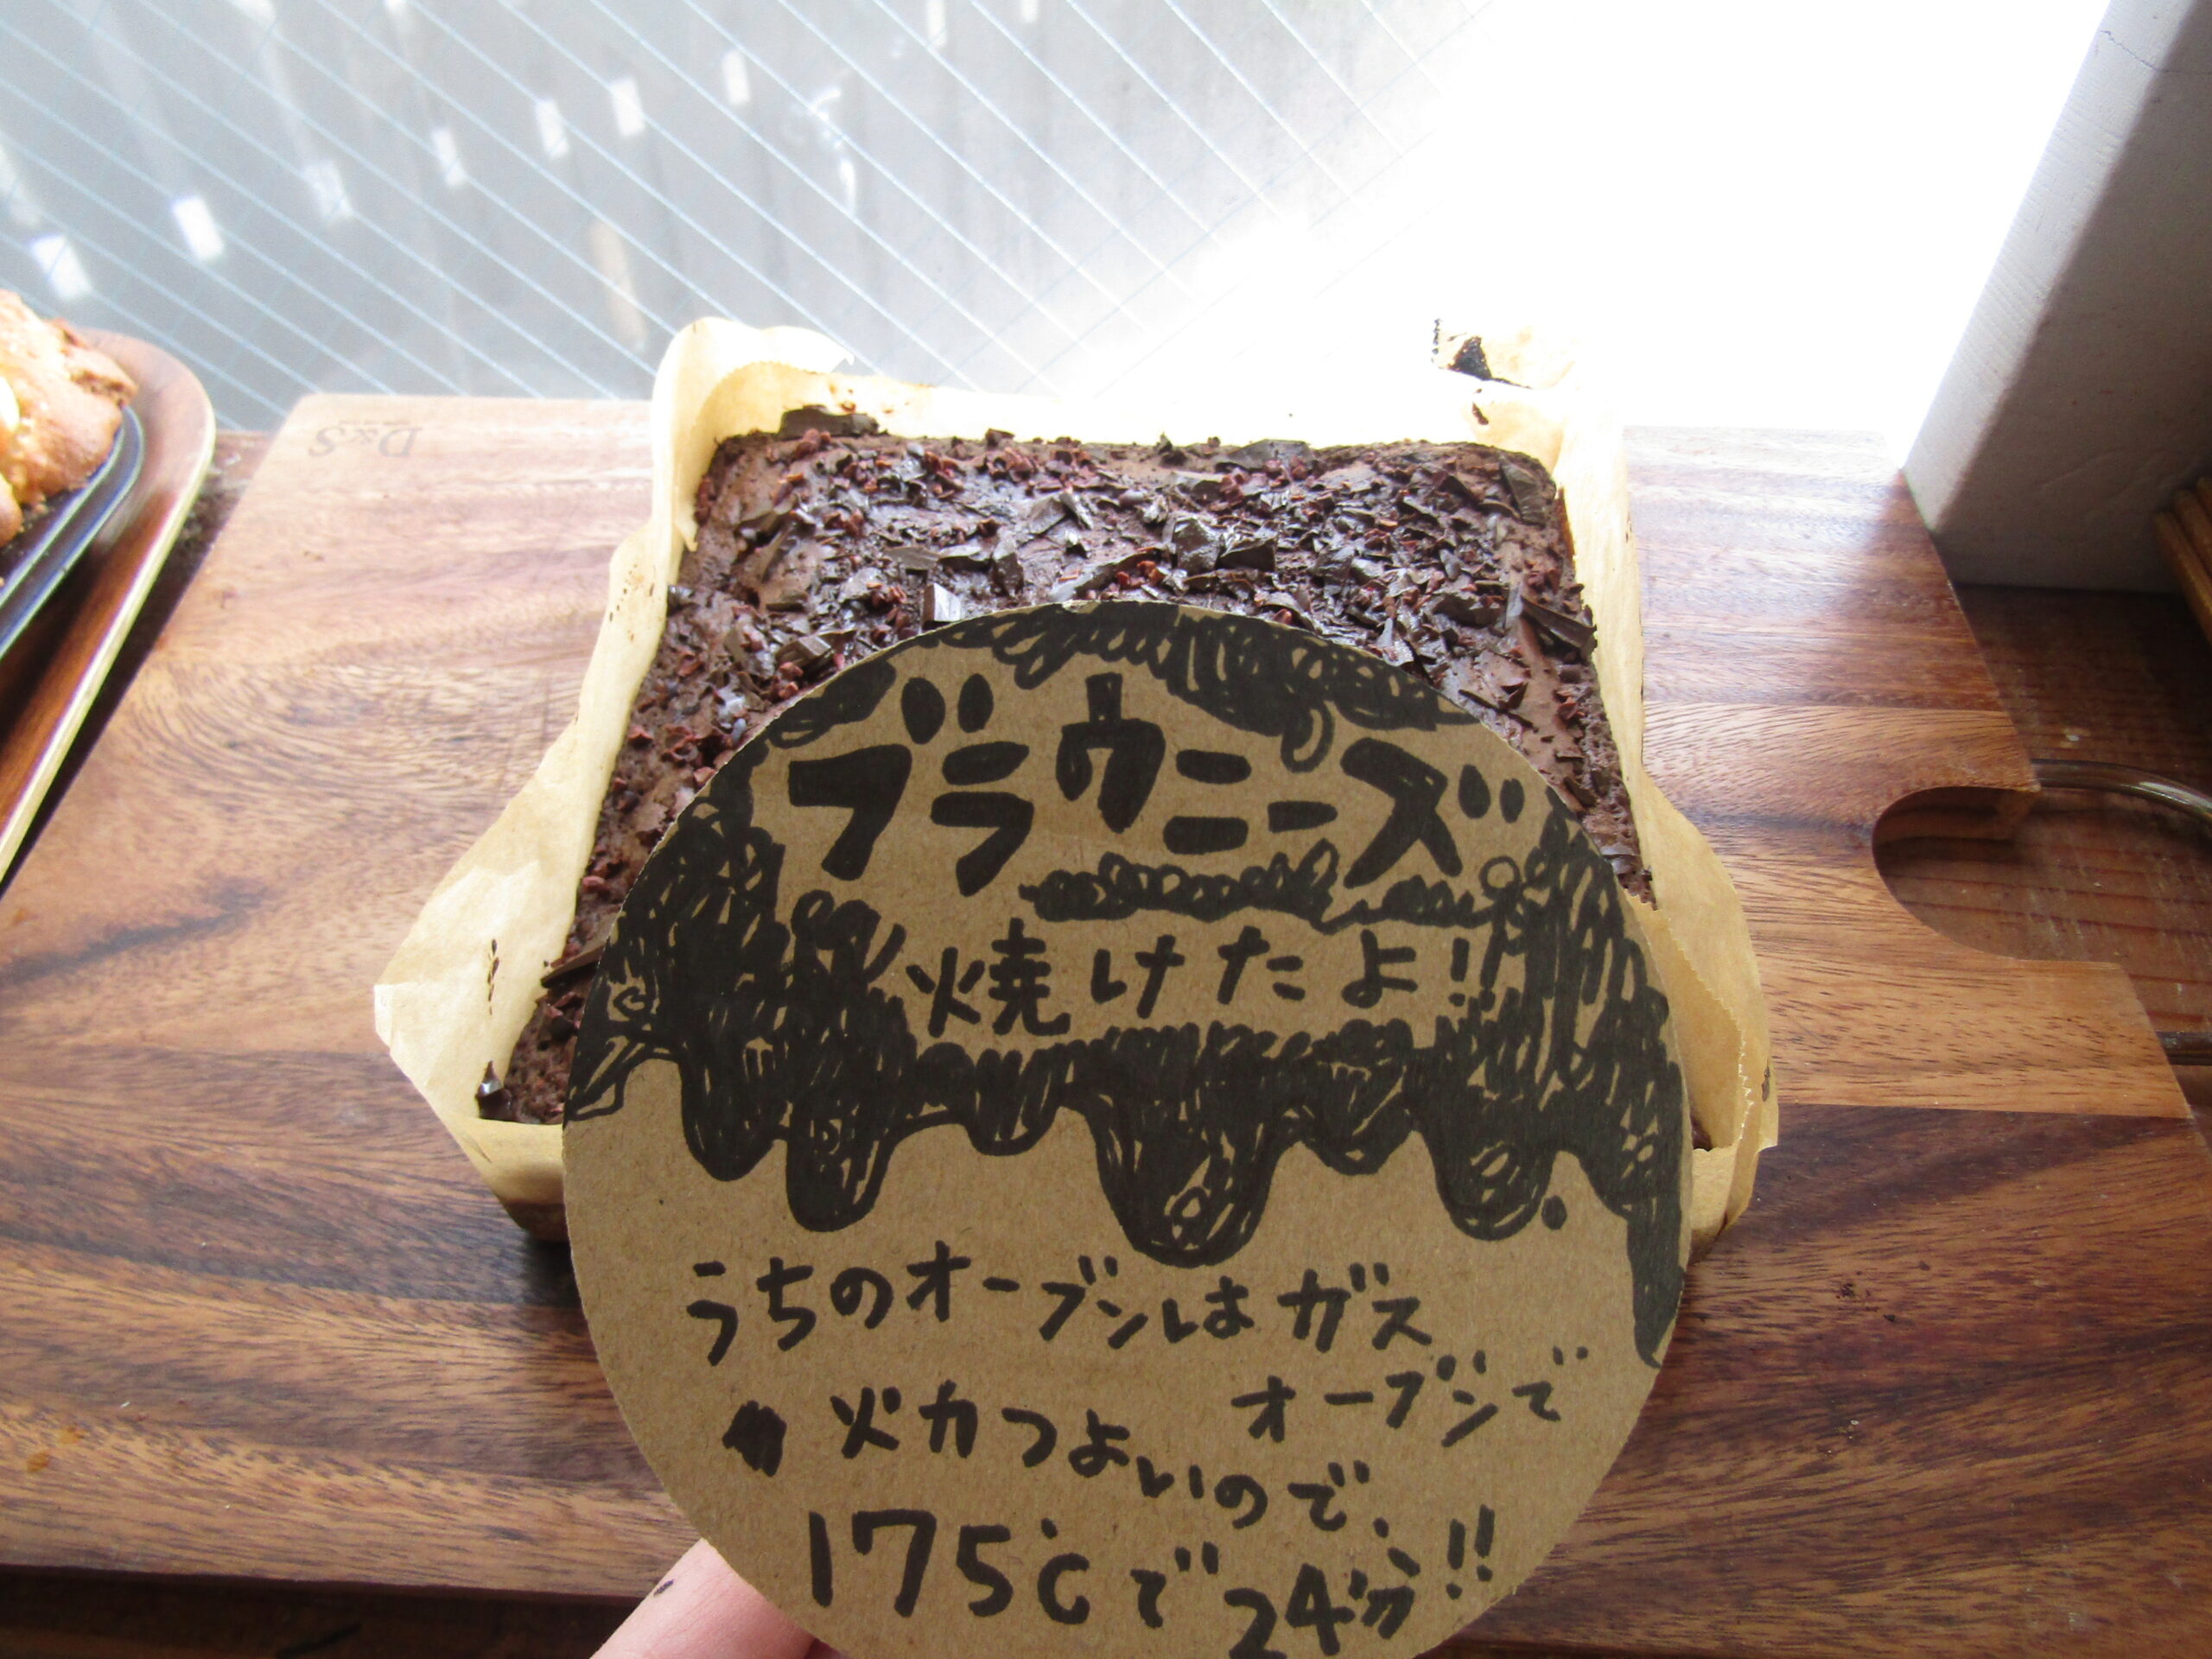 D&S
ブラウニーズ
焼けたよ!!
うちのオーブンはガス
オーブンで
火力つよいので、
175℃で24分!!